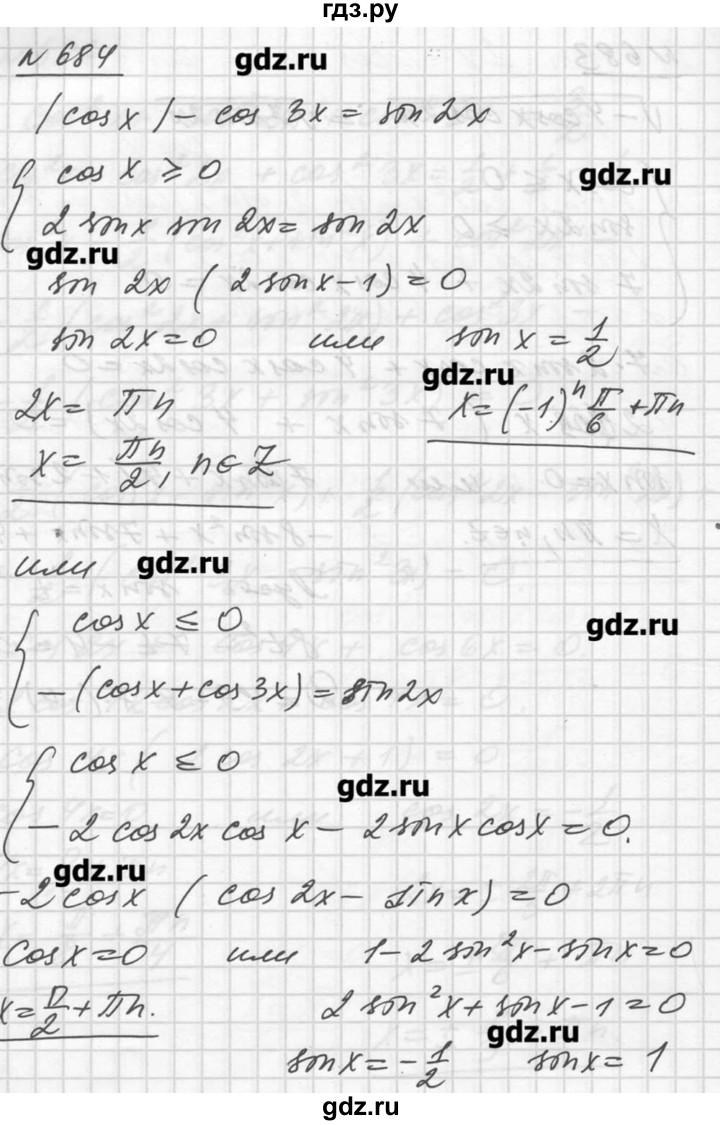 гдз.ру
№ 684
gdz.ru
|cos x| - cos 3x = sin 2x
{ cos x ≥ 0
gdz.ru
2 sin x sin 2x = sin 2x
gdz.ru
sin 2x ( 2 sin x - 1) = 0
sin 2x = 0 или sin x = 1/2
gdz.ru
2x = πn x = (-1)^n π/6 + πn
x = πn/2, n ∈ Z
или gdz.ru
{ cos x ≤ 0
gdz.ru
- (cos x + cos 3x) = sin 2x
{ cos x ≤ 0
gdz.ru
- 2 cos 2x cos x - 2 sin x cos x = 0.
gdz.ru
-2 cos x ( cos 2x - sin x) = 0
cos x = 0 или 1 - 2 sin²x - sin x = 0
x = π/2 + πn. 2 sin²x + sin x - 1 = 0
gdz.ru
sin x = - 1/2 sin x = 1
gdz.ru